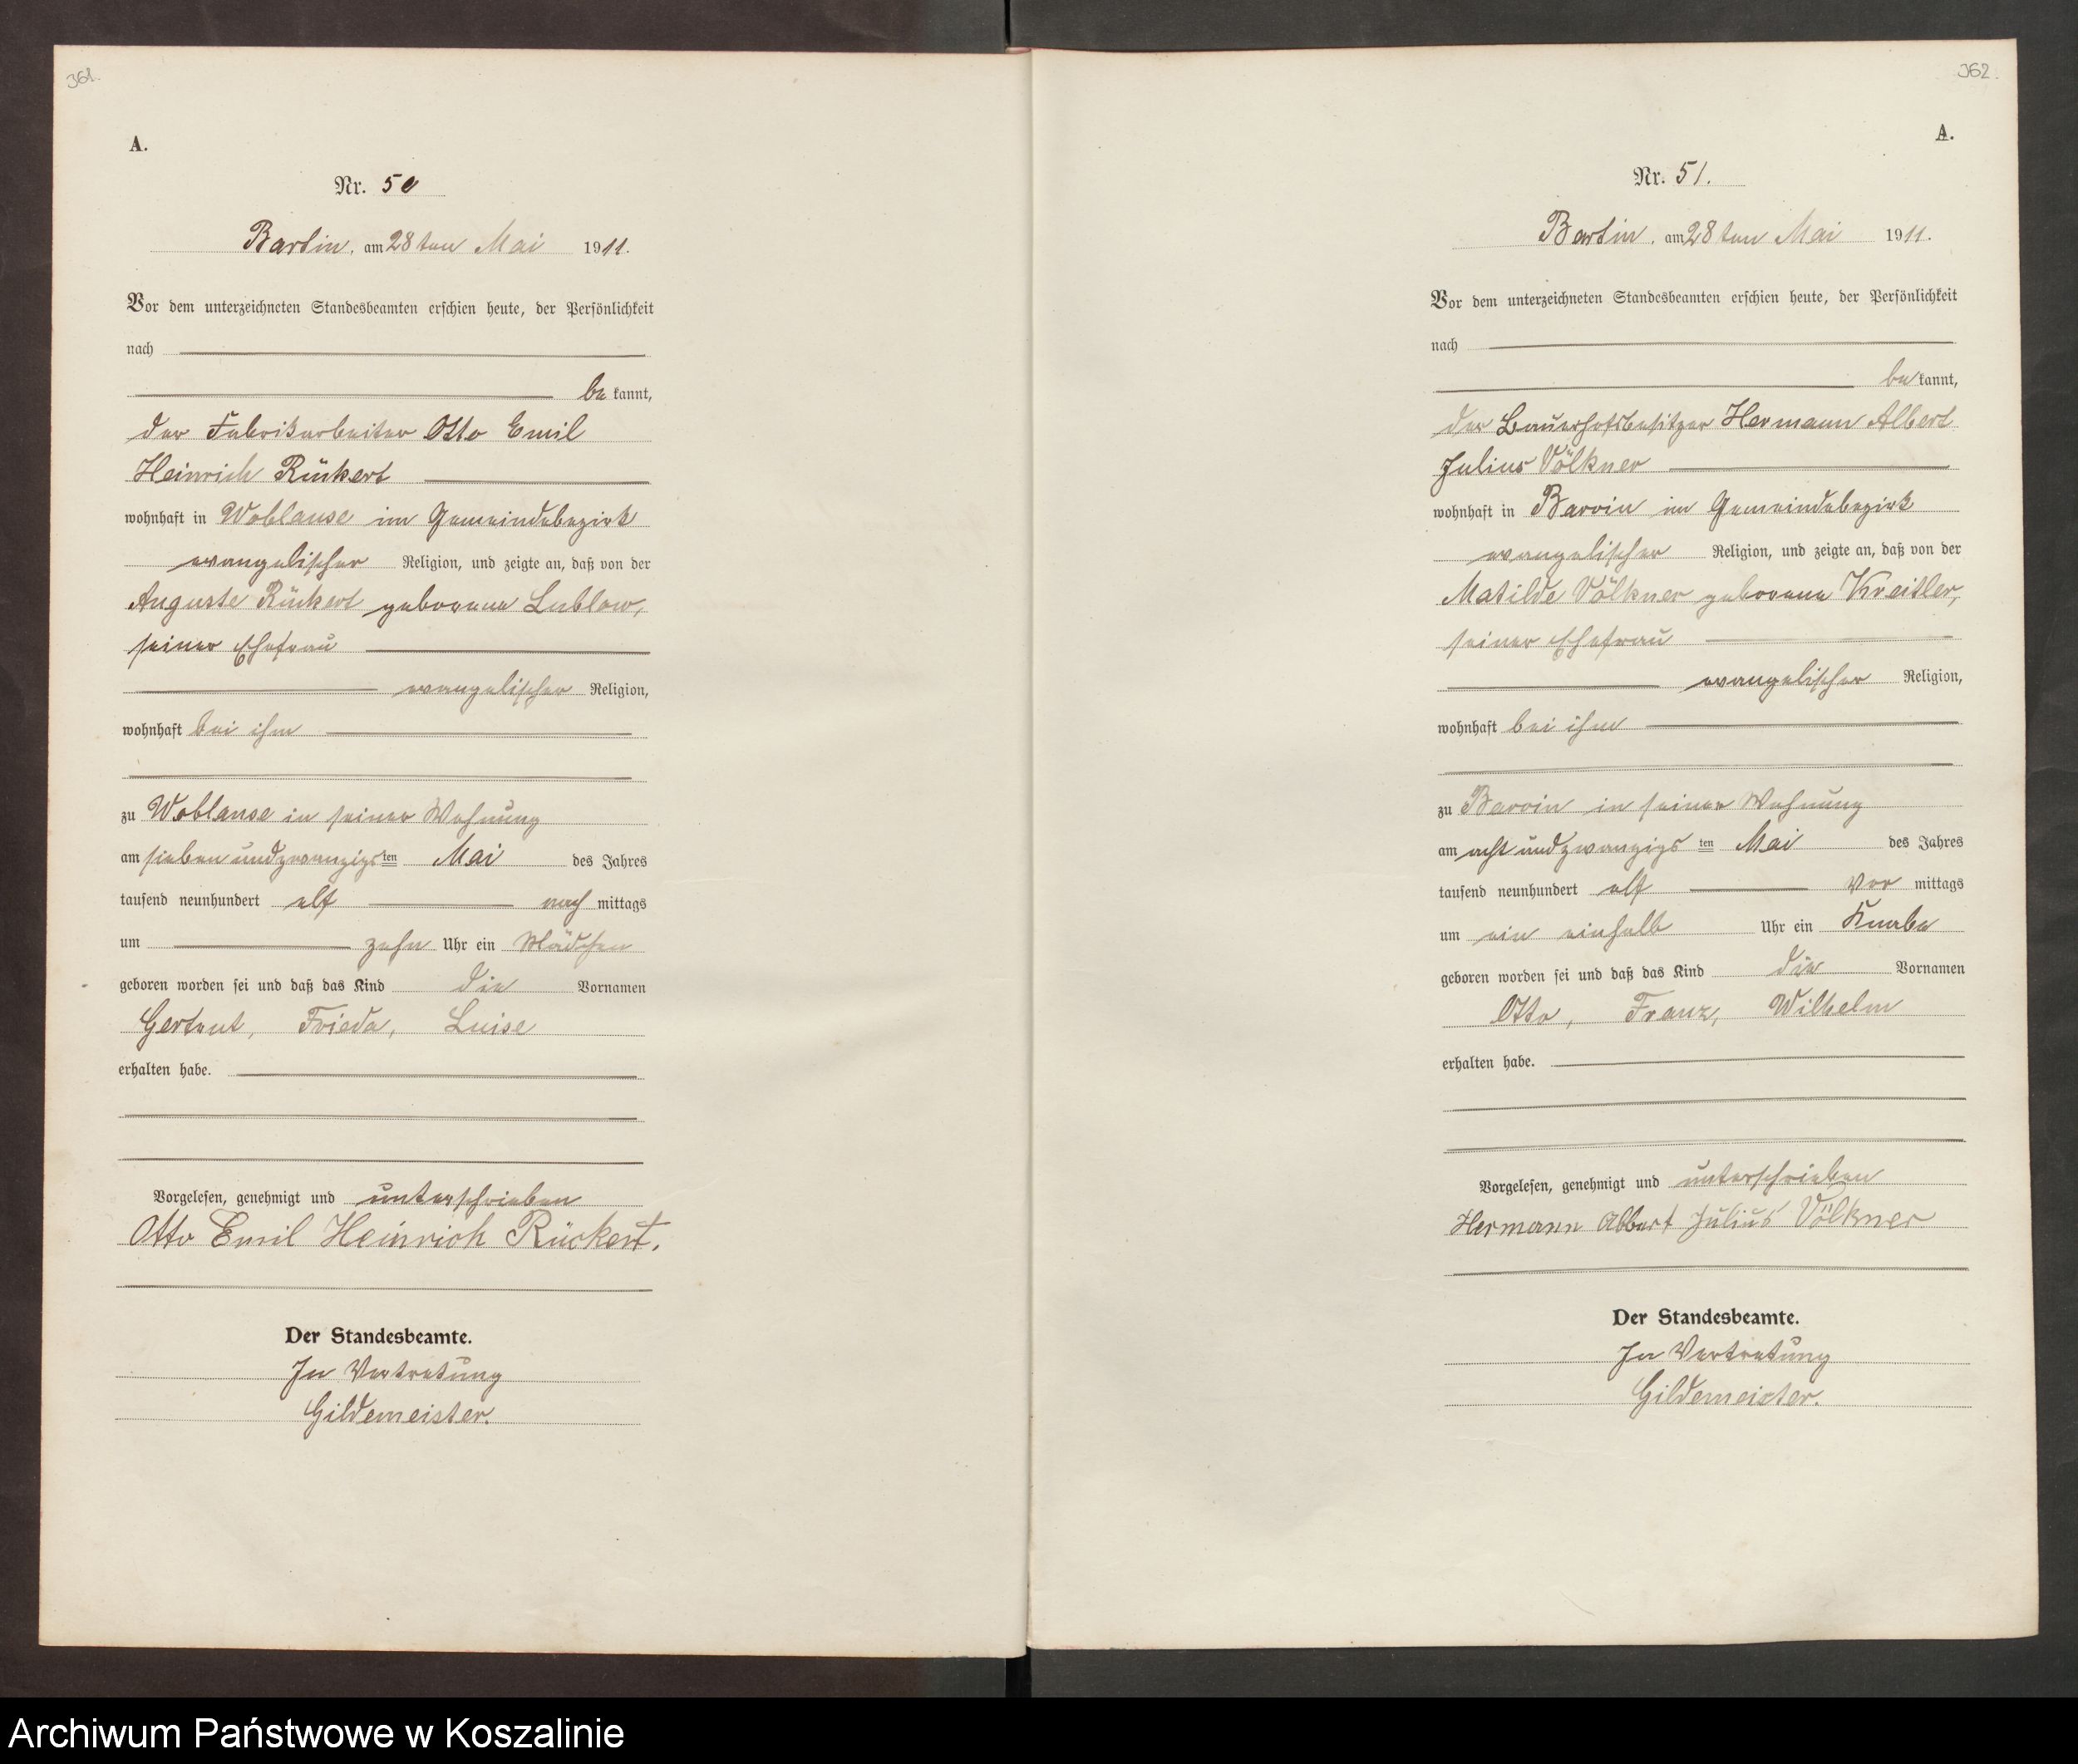 361.
A.
Nr. 50
Bartin, am 28ten Mai 1911.
Vor dem unterzeichneten Standesbeamten erschien heute, der Persönlichkeit
nach
be kannt,
der Fabrikarbeiter Otto Emil
Heinrich Rückert
wohnhaft in Woblanse im Gemeindebezirk
evangelischer Religion, und zeigte an, daß von der
Auguste Rückert geborene Lublow,
seiner Ehefrau
evangelischer Religion,
wohnhaft bei ihm
zu Woblanse in seiner Wohnung
am siebenundzwanzigsten Mai des Jahres
tausend neunhundert elf nach mittags
um zehn Uhr ein Mädchen
geboren worden sei und daß das Kind die Vornamen
Gertrut, Frieda, Luise
erhalten habe.
Vorgelesen, genehmigt und unterschrieben
Otto Emil Heinrich Rückert.
Der Standesbeamte.
In Vertretung
Gildemeister.
362.
A.
Nr. 51.
Bartin, am 28ten Mai 1911.
Vor dem unterzeichneten Standesbeamten erschien heute, der Persönlichkeit
nach
be kannt,
der Bauerhofsbesitzer Hermann Albert
Julius Völkner
wohnhaft in Barvin im Gemeindebezirk
evangelischer Religion, und zeigte an, daß von der
Matilde Völkner geborene Kreitler,
seiner Ehefrau
evangelischer Religion,
wohnhaft bei ihm
zu Barvin in seiner Wohnung
am achtundzwanzigsten Mai des Jahres
tausend neunhundert elf Vor mittags
um ein einhalb Uhr ein Knabe
geboren worden sei und daß das Kind die Vornamen
Otto, Franz, Wilhelm
erhalten habe.
Vorgelesen, genehmigt und unterschrieben
Hermann Albert Julius Völkner
Der Standesbeamte.
In Vertretung
Gildemeister.
Archiwum Państwowe w Koszalinie